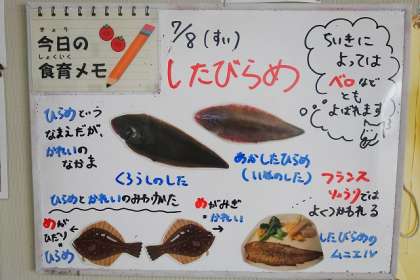 きょう
今日の
しょくいく
食育メモ
7/8(すい)
したびらめ
ちいきに
よっては
ベロなど
とも
よばれます
ひらめという
なまえだが、
かれいの
なかま
くろうしのした
あかしたびらめ
(いぬのした)
フランス
りょうりでは
よくつかわれる
ひらめとかれいのみわけかた
めが
ひだり
ひらめ
めがみぎ
かれい
したびらめの
ムニエル